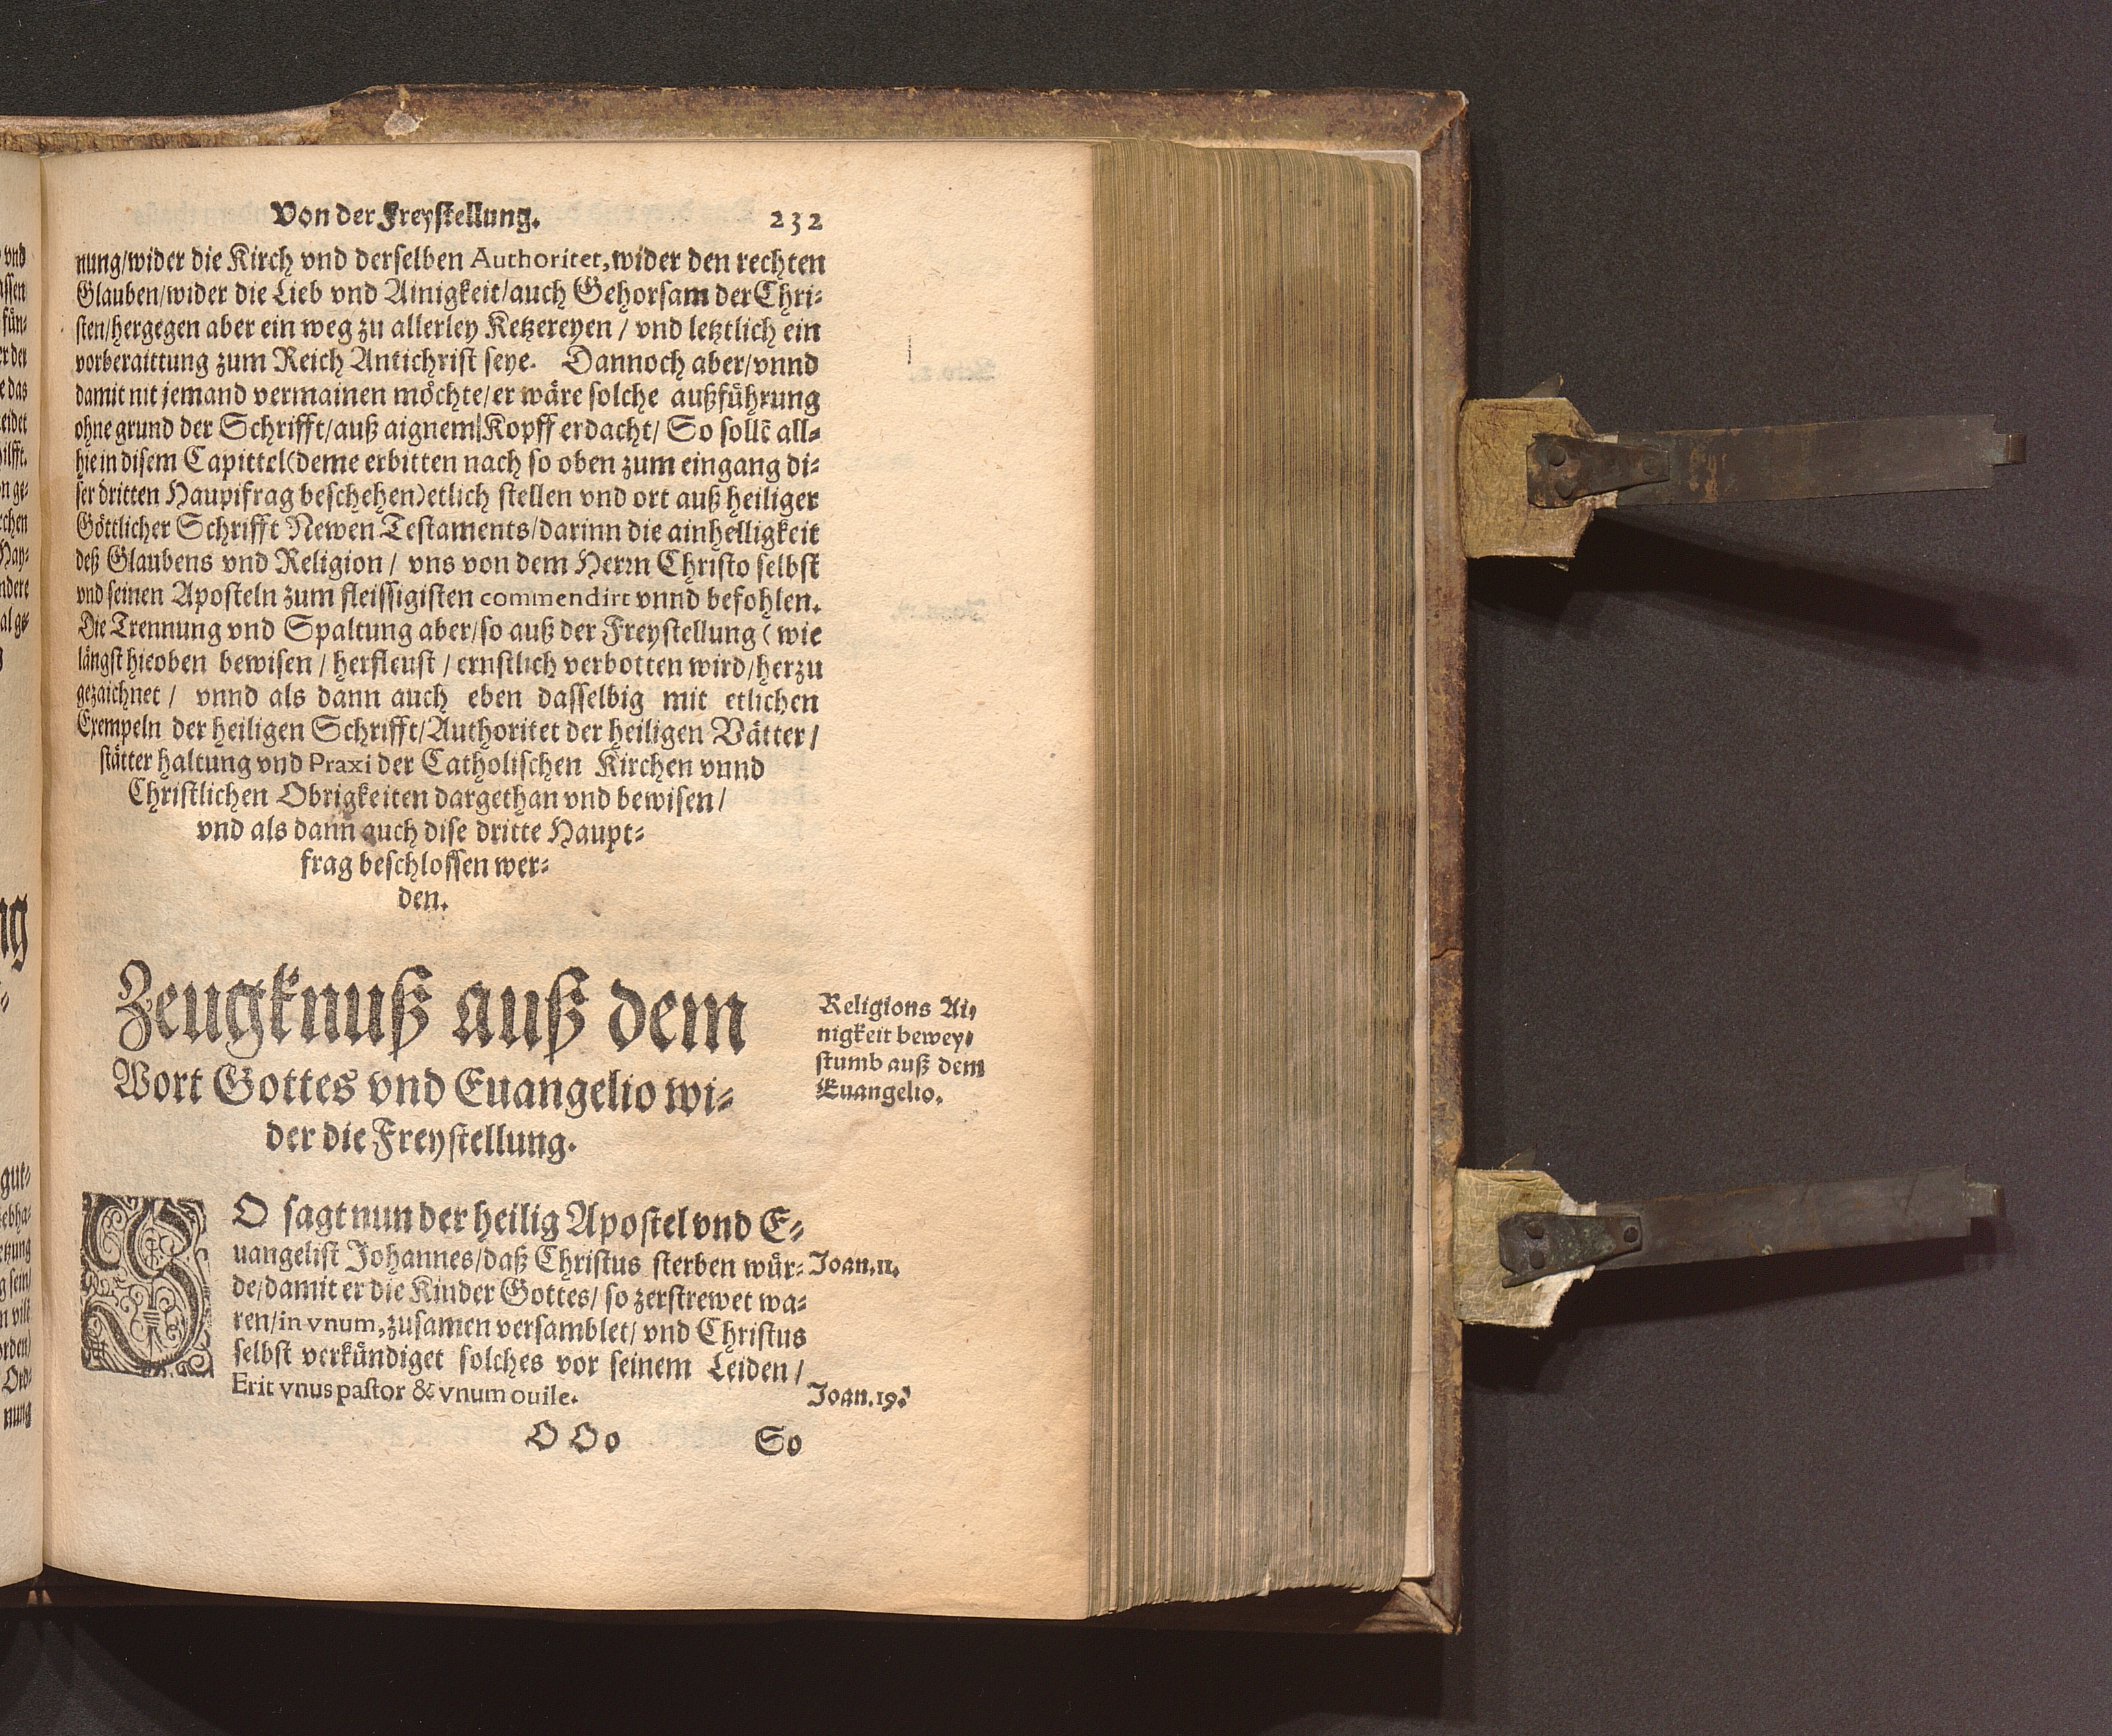 Von der Freystellung. 232
nung/wider die Kirch vnd derselben Authoritet, wider den rechten
Glauben/wider die Lieb vnd Ainigkeit/auch Gehorsam der Chri-
sten/hergegen aber ein weg zu allerley Ketzereyen / vnd letztlich ein
vorberaittung zum Reich Antichrist seye. Dannoch aber/vnnd
damit nit jemand vermainen möchte/er wäre solche außführung
ohne grund der Schrifft/auß aignem Kopff erdacht/ So sollē all-
hie in disem Capittel (deme erbitten nach so oben zum eingang di-
ser dritten Haupifrag beschehen) etlich stellen vnd ort auß heiliger
Göttlicher Schrifft Newen Testaments/darinn die ainhelligkeit
deß Glaubens vnd Religion / vns von dem Herrn Christo selbst
vnd seinen Aposteln zum fleissigisten commendirt vnnd befohlen.
Die Trennung vnd Spaltung aber/so auß der Freystellung (wie
längst hieoben bewisen / herfleust / ernstlich verbotten wird/herzu
gezaichnet / vnnd als dann auch eben dasselbig mit etlichen
Exempeln der heiligen Schrifft/Authoritet der heiligen Vätter/
stätter haltung vnd Praxi der Catholischen Kirchen vnnd
Christlichen Obrigkeiten dargethan vnd bewisen/
vnd als dann auch dise dritte Haupt-
frag beschlossen wer-
den.
Zeugknuß auß dem
Wort Gottes vnd Euangelio wi-
der die Freystellung.
Religions Ai-
nigkeit bewey-
stumb auß dem
Euangelio.
SO sagt nun der heilig Apostel vnd E-
uangelist Johannes/daß Christus sterben wür-
Joan. 11.
de/damit er die Kinder Gottes/ so zerstrewet wa-
ren/in vnum, zusamen versamblet/ vnd Christus
selbst verkündiget solches vor seinem Leiden /
Erit vnus pastor & vnum ouile.
Joan. 19.
OOo So
vnd
assen
fün-
er der
e das
eidet
hilfft.
on ge-
rchen
Hay-
ndere
al ge-
ng
gut-
ebha-
etzung
g sein/
n vilt
orden/
Ord-
nung